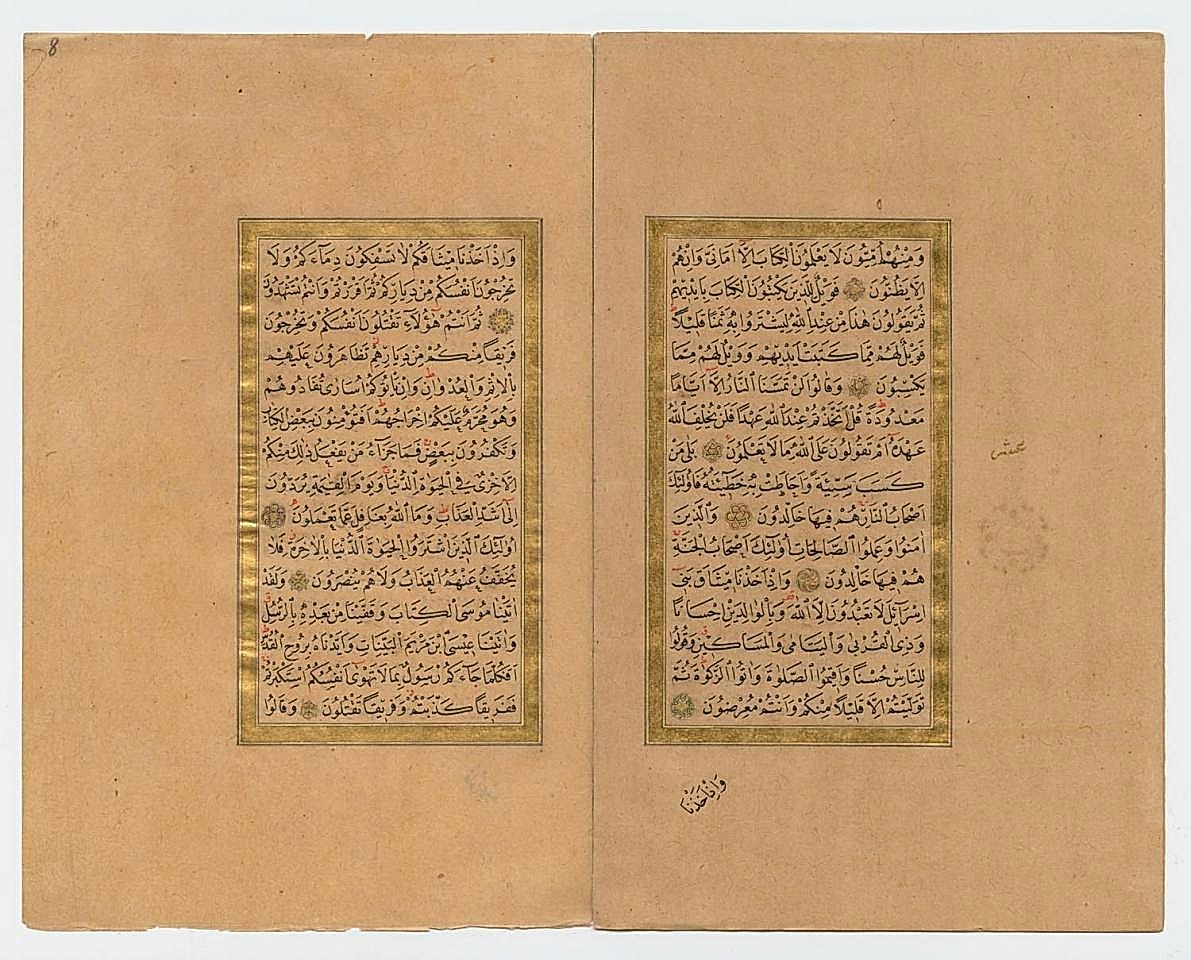 وَمِنْهُمْ اُمِّيُّونَ لَا يَعْلَمُونَ الْكِتَابَ اِلَّا اَمَانِىَّ وَاِنْ هُمْ
اِلَّا يَظُنُّونَ فَوَيْلٌ لِلَّذِينَ يَكْتُبُونَ الْكِتَابَ بِاَيْدِيهِمْ
ثُمَّ يَقُولُونَ هٰذَا مِنْ عِنْدِ اللّٰهِ لِيَشْتَرُوا بِهِ ثَمَنًا قَلِيلًا
فَوَيْلٌ لَهُمْ مِمَّا كَتَبَتْ اَيْدِيهِمْ وَوَيْلٌ لَهُمْ مِمَّا
يَكْسِبُونَ وَقَالُوا لَنْ تَمَسَّنَا النَّارُ اِلَّا اَيَّامًا
مَعْدُودَةً قُلْ اَتَّخَذْتُمْ عِنْدَ اللّٰهِ عَهْدًا فَلَنْ يُخْلِفَ اللّٰهُ
عَهْدَهُ اَمْ تَقُولُونَ عَلَى اللّٰهِ مَا لَا تَعْلَمُونَ بَلٰى مَنْ
كَسَبَ سَيِّئَةً وَاَحَاطَتْ بِهِ خَطِيئَتُهُ فَاُولٰئِكَ
اَصْحَابُ النَّارِ هُمْ فِيهَا خَالِدُونَ وَالَّذِينَ
اٰمَنُوا وَعَمِلُوا الصَّالِحَاتِ اُولٰئِكَ اَصْحَابُ الْجَنَّةِ
هُمْ فِيهَا خَالِدُونَ وَاِذْ اَخَذْنَا مِيثَاقَ بَنِى
اِسْرَائِلَ لَا تَعْبُدُونَ اِلَّا اللّٰهَ وَبِالْوَالِدَيْنِ اِحْسَانًا
وَذِى الْقُرْبٰى وَالْيَتَامٰى وَالْمَسَاكِينِ وَقُولُوا
لِلنَّاسِ حُسْنًا وَاَقِيمُوا الصَّلٰوةَ وَاٰتُوا الزَّكٰوةَ ثُمَّ
تَوَلَّيْتُمْ اِلَّا قَلِيلًا مِنْكُمْ وَاَنْتُمْ مُعْرِضُونَ
وَاِذْ اَخَذْنَا
8
وَاِذْ اَخَذْنَا مِيثَاقَكُمْ لَا تَسْفِكُونَ دِمَاءَكُمْ وَلَا
تُخْرِجُونَ اَنْفُسَكُمْ مِنْ دِيَارِكُمْ ثُمَّ اَقْرَرْتُمْ وَاَنْتُمْ تَشْهَدُونَ
ثُمَّ اَنْتُمْ هٰؤُلَاءِ تَقْتُلُونَ اَنْفُسَكُمْ وَتُخْرِجُونَ
فَرِيقًا مِنْكُمْ مِنْ دِيَارِهِمْ تَظَاهَرُونَ عَلَيْهِمْ
بِالْاِثْمِ وَالْعُدْوَانِ وَاِنْ يَأْتُوكُمْ اُسَارٰى تُفَادُوهُمْ
وَهُوَ مُحَرَّمٌ عَلَيْكُمْ اِخْرَاجُهُمْ اَفَتُؤْمِنُونَ بِبَعْضِ الْكِتَابِ
وَتَكْفُرُونَ بِبَعْضٍ فَمَا جَزَاءُ مَنْ يَفْعَلُ ذٰلِكَ مِنْكُمْ
اِلَّا خِزْىٌ فِى الْحَيٰوةِ الدُّنْيَا وَيَوْمَ الْقِيٰمَةِ يُرَدُّونَ
اِلٰى اَشَدِّ الْعَذَابِ وَمَا اللّٰهُ بِغَافِلٍ عَمَّا تَعْمَلُونَ
اُولٰئِكَ الَّذِينَ اشْتَرَوُا الْحَيٰوةَ الدُّنْيَا بِالْاٰخِرَةِ فَلَا
يُخَفَّفُ عَنْهُمُ الْعَذَابُ وَلَا هُمْ يُنْصَرُونَ وَلَقَدْ
اٰتَيْنَا مُوسَى الْكِتَابَ وَقَفَّيْنَا مِنْ بَعْدِهِ بِالرُّسُلِ
وَاٰتَيْنَا عِيسَى ابْنَ مَرْيَمَ الْبَيِّنَاتِ وَاَيَّدْنَاهُ بِرُوحِ الْقُدُسِ
اَفَكُلَّمَا جَاءَكُمْ رَسُولٌ بِمَا لَا تَهْوٰى اَنْفُسُكُمُ اسْتَكْبَرْتُمْ
فَفَرِيقًا كَذَّبْتُمْ وَفَرِيقًا تَقْتُلُونَ وَقَالُوا